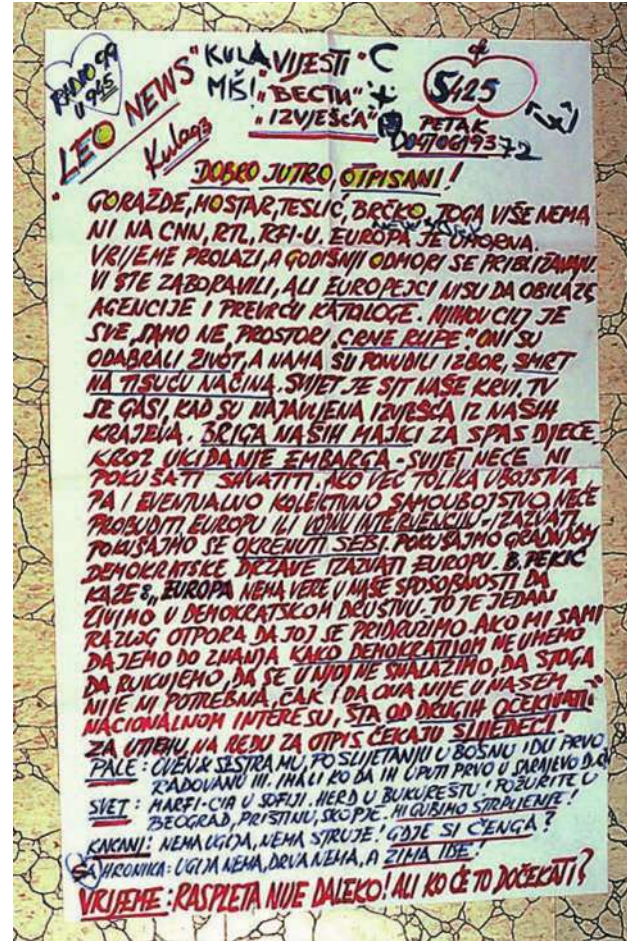 RADIO 99
U 945
"LEO NEWS"
Kula 93
KULA VIJESTI
MIŠ! "ВЕСТИ"
"IZVJEŠĆA"
5425
PETAK
04/06/93 72
DOBRO JUTRO, OTPISANI!
GORAŽDE, MOSTAR, TESLIĆ, BRČKO, TOGA VIŠE NEMA
NI NA CNN, RTL, RFI-U. EUROPA JE UMORNA.
VRIJEME PROLAZI, A GODIŠNJI ODMORI SE PRIBLIŽAVAJU.
VI STE ZABORAVILI, ALI EUROPEJCI NISU DA OBILAZE
AGENCIJE I PREVRĆU KATALOGE. NJIHOV CILJ JE
SVE, SAMO NE, PROSTORI "CRNE RUPE". ONI SU
ODABRALI ŽIVOT, A NAMA SU PONUDILI IZBOR, SMRT
NA TISUĆU NAČINA. SVIJET JE SIT NAŠE KRVI. TV
SE GASI, KAD SU NAJAVLJENA IZVJEŠĆA IZ NAŠIH
KRAJEVA. BRIGA NAŠIH MAJKI ZA SPAS DJECE
KROZ UKIDANJE EMBARGA - SVIJET NEĆE NI
POKUŠATI SHVATITI. AKO VEĆ TOLIKA UBOJSTVA
PA I EVENTUALNO KOLEKTIVNO SAMOUBOJSTVO NEĆE
PROBUDITI EUROPU ILI VOJNU INTERVENCIJU - IZAZVATI,
POKUŠAJMO SE OKRENUTI SEBI. POKUŠAJMO GRADNJOM
DEMOKRATSKE DRŽAVE IZAZVATI EUROPU. B. PEKIĆ
KAŽE: "EUROPA NEMA VERE U NAŠE SPOSOBNOSTI DA
ŽIVIMO U DEMOKRATSKOM DRUŠTVU. TO JE JEDAN
RAZLOG OTPORA DA JOJ SE PRIDRUŽIMO. AKO MI SAMI
DAJEMO DO ZNANJA KAKO DEMOKRATIJOM NE UMEMO
DA RUKUJEMO, DA SE U NJOJ NE SNALAZIMO, DA STOGA
NIJE NI POTREBNA, ČAK I DA ONA NIJE U NAŠEM
NACIONALNOM INTERESU, ŠTA OD DRUGIH OČEKIVATI"
ZA UTJEHU, NA REDU ZA OTPIS ČEKAJU SLIJEDEĆI!
PALE: OVEN & SESTRA MU, PO SLIJETANJU U BOSNU IDU PRVO
RADOVANU III. IMA LI KO DA IH UPUTI PRVO U SARAJEVO
SVET: MARFI-CIA U SOFIJI. HERD U BUKUREŠTU! POŽURITE U
BEOGRAD, PRIŠTINU, SKOPJE. MI GUBIMO STRPLJENJE!
KAKANJ: NEMA UGLJA, NEMA STRUJE! GDJE SI ČENGA?
SA HRONIKA: UGLJA NEMA, DRVA NEMA, A ZIMA IDE!
VRIJEME: RASPLETA NIJE DALEKO! ALI KO ĆE TO DOČEKATI?